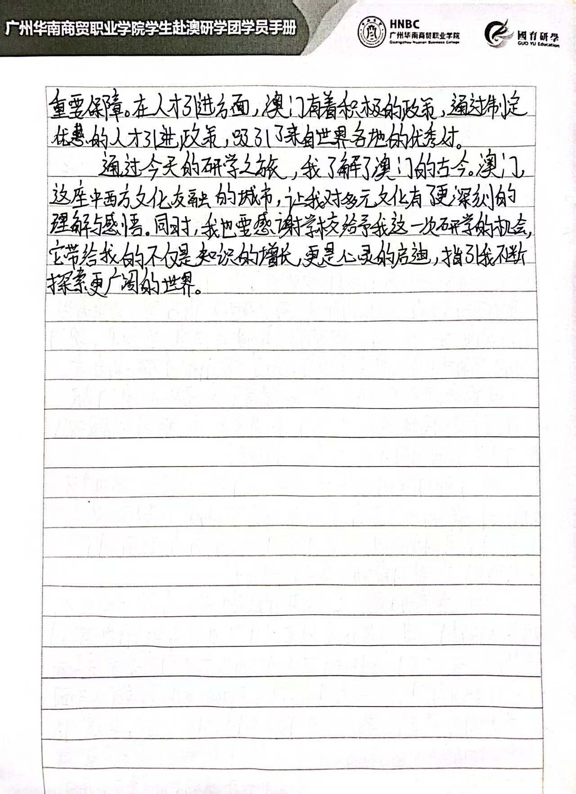 广州华南商贸职业学院学生赴澳研学团学员手册
HNBC
广州华南商贸职业学院
Guangzhou Huanan Business College
國育研學
GUO YU Education
重要保障。在人才引进方面，澳门有着积极的政策，通过制定
优惠的人才引进政策，吸引了来自世界各地的优秀材。
通过今天的研学之旅，我了解了澳门的古今。澳门
这座中西方文化交融的城市，让我对多元文化有了更深刻的
理解与感悟。同时，我也要感谢学校给予我这一次研学的机会，
它带给我的不仅是知识的增长，更是心灵的启迪，指引我不断
探索更广阔的世界。